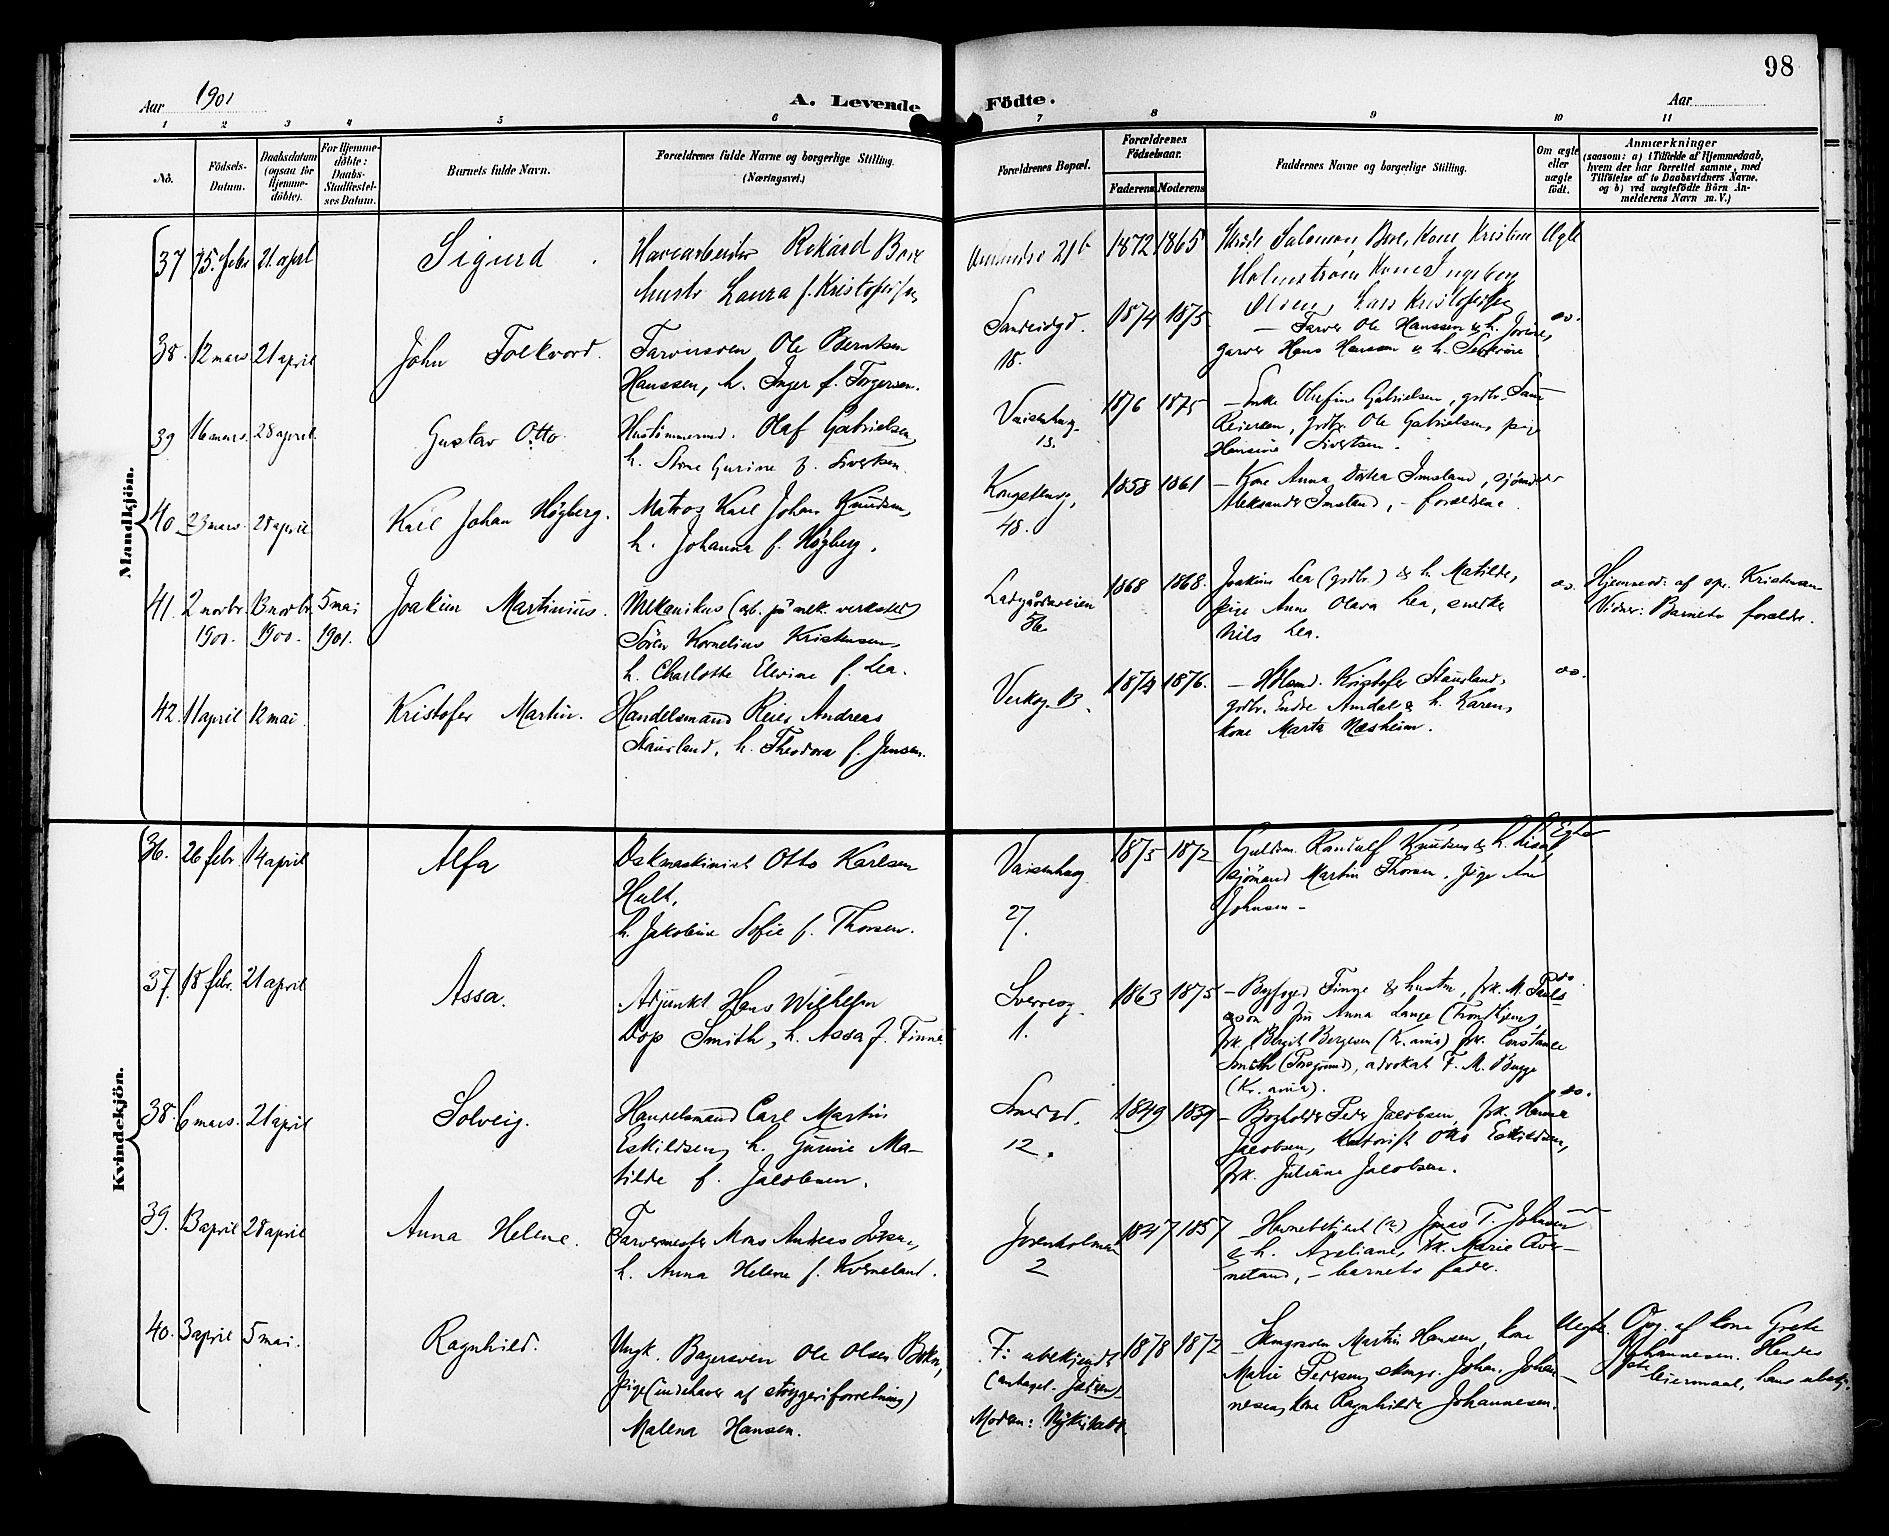 98
Aar 1901
A. Levende Födte.
Aar
1 2 3 4 5 6 7 8 9 10 11
No.
Födsels-Datum.
Daabsdatum (ogsaa for Hjemme-döbte).
For Hjemme-döbte: Daabs-Stadfæstel-ses Datum.
Barnets fulde Navn.
Forældrenes fulde Navne og borgerlige Stilling.
(Næringsvei.)
Forældrenes Bopæl.
Forældrenes Födselsaar.
Faderens Moderens
Faddernes Navne og borgerlige Stilling.
Om ægte eller uægte födt.
Anmærkninger
(saasom: a) i Tilfælde af Hjemmedaab,
hvem der har forrettet samme, med
Tilföielse af to Daabsvidners Navne.
og b) ved uægtefödte Börn An-
melderens Navn m. V.)
Mandkjön.
37 15. febr 21. april Sigurd
Laura f. Kristofersen
1872 1865
Salomon Bore, Kone Kristine
Holmström Kone Ingeborg
Olsen, Lars Kristofersen
38. 12 mars 21 april John Folkvord.
Farversven Ole Berntsen
Hanssen, h. Inger f. Torgersen.
18.
1874 1875
— Farver Ole Hanssen & h. Jorine,
garver Hans Hansen & h. Severine
do.
39 16 mars. 28 april. Gustav Otto.
Hustömmermd. Olaf Gabrielsen,
h. Anne Gurine f. Sivertsen.
Vaisenhusg.
13.
1876 1875
— Enke Olufine Gabrielsen,
Reiersen, Ole Gabrielsen, pige
Hansine Sivertsen.
40. 23 mars. 28 april Karl Johan Högberg.
Matros Karl Johan Knudsen,
h. Johanna f. Högberg.
Kongsteng,
48.
1858 1861
— Kone Anna Dortea Imsland,
Aleksander Imsland, – forældrene.
41. 2 novbr. 1900. 13 novbr. 1900. 5 mai 1901. Joakim Martinius.
Mekanikus (arb. på mek. verksted)
Sören Kornelius Kristensen,
h. Charlotte Elevine f. Lea.
Ladegårdsveien
56
1868 1868.
Joakim Lea (grdbr.) & h. Matilde,
pige Anne Olava Lea, snedker
Nils Lea.
do.
Hjemmed. af
Vidner: Barnets forældre.
42. 11 april 12 mai. Kristofer Martin.
Handelsmand Reier Andreas
Staurland, h. Theodora f. Jensen.
Verksg. 13.
1874 1876.
— Hdlsmd. Kristofer Staurland,
grdbr. Endre Amdal & h. Karen,
kone Marta Næsheim.
do.
Kvindekjön.
36. 26 febr. 14 april Alfa
Otto Karlsen
Hult,
h. Jakobine Sofie f. Thorsen.
Vaisenhusg
27.
1875 1872
Guldsm. Randulf Knudsen & h. Lisa,
sjömand Martin Thorsen, pige Ane
Johnsen –
Egte
37. 18 febr. 21 april Assa.
Adjunkt Hans Wilhelm
Dop Smith, h. Assa f. Finne
Sverresg.
1.
1863 1875
— Byfoged Finne & hustru, frk. M. Pauls-
son, fru Anna Lange (Trondhjem),
frk. Birgit Bergesen (Kr.ania) frk. Constance
Smith (Porsgrund), advokat F. M. Bugge
(Kr.ania).
do.
38. 6 mars. 21 april Solveig.
Handelsmand Carl Martin
Eskildsen, h. Gurine Ma-
tilde f. Jacobsen.
12.
1849 1859
— Bogholder Peder Jacobsen, frk. Hanna
Jacobsen, kontorist Otto Eskildsen,
frk. Juliane Jacobsen.
do.
39. 13 april 28 april Anna Helene.
Farvermester Mons Andreas
h. Anna Helene f. Kverneland.
Jorenholmen
2
1847 1857
— Havnebetjent (?) Jonas T. Johnsen
& h. Axeliane, frk. Marie Aver-
netand, – barnets fader.
40. 3 april 5 mai. Ragnhild.
Ungk. Bagersven Ole Olsen Bokn,
pige (indehaver af strygeriforretning)
Malena Hansen.
F: ubekjendt
(antagel. Jæderen)
Modern: Nykirkebk.
1878 1872
— Skmgrsven Martin Hansen, kone
Marie Pedersen, skmgr. Johan Johan-
nesen, kone Ragnhilde Johannesen.
Uegte.
Opg. af kone Grete
Johannesen. Hendes
1ste leiermaal, hans ubekj.